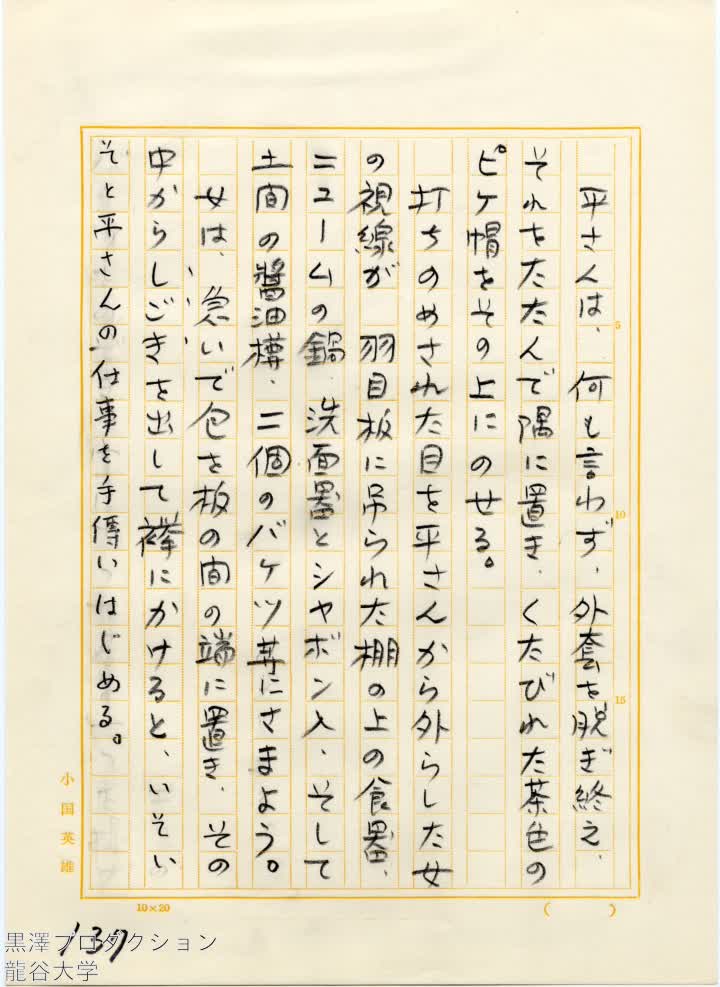 平さんは、何も言わず、外套を脱ぎ終え、
それをたたんで隅に置き、くたびれた茶色の
ピケ帽をその上にのせる。
打ちのめされた目を平さんから外らした女
の視線が　羽目板に吊られた棚の上の食器、
ニュームの鍋、洗面器とシャボン入、そして
土間の醤油樽、二個のバケツ等にさまよう。
女は、急いで包を板の間の端に置き、その
中からしごきを出して襷にかけると、いそい
そと平さんの仕事を手傳いはじめる。
5
10
15
小国英雄
10×20
(　　)
137
黒澤プロダクション
龍谷大学